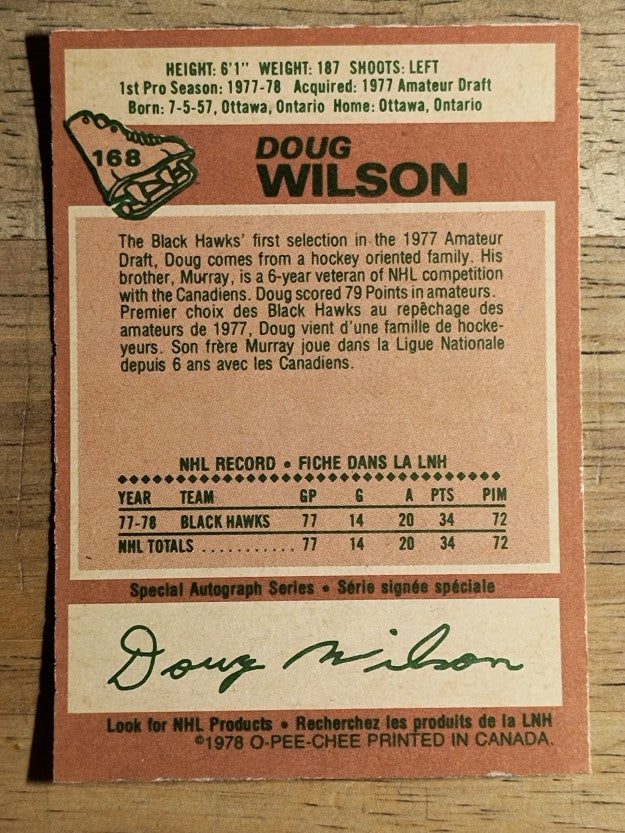 HEIGHT: 6'1" WEIGHT: 187 SHOOTS: LEFT
1st Pro Season: 1977-78 Acquired: 1977 Amateur Draft
Born: 7-5-57, Ottawa, Ontario Home: Ottawa, Ontario
168
DOUG
WILSON
The Black Hawks' first selection in the 1977 Amateur
Draft, Doug comes from a hockey oriented family. His
brother, Murray, is a 6-year veteran of NHL competition
with the Canadiens. Doug scored 79 Points in amateurs.
Premier choix des Black Hawks au repêchage des
amateurs de 1977, Doug vient d'une famille de hocke-
yeurs. Son frère Murray joue dans la Ligue Nationale
depuis 6 ans avec les Canadiens.
NHL RECORD • FICHE DANS LA LNH
YEAR TEAM GP G A PTS PIM
77-78 BLACK HAWKS 77 14 20 34 72
NHL TOTALS ........... 77 14 20 34 72
Special Autograph Series • Série signée spéciale
Doug Wilson
Look for NHL Products • Recherchez les produits de la LNH
©1978 O-PEE-CHEE PRINTED IN CANADA.